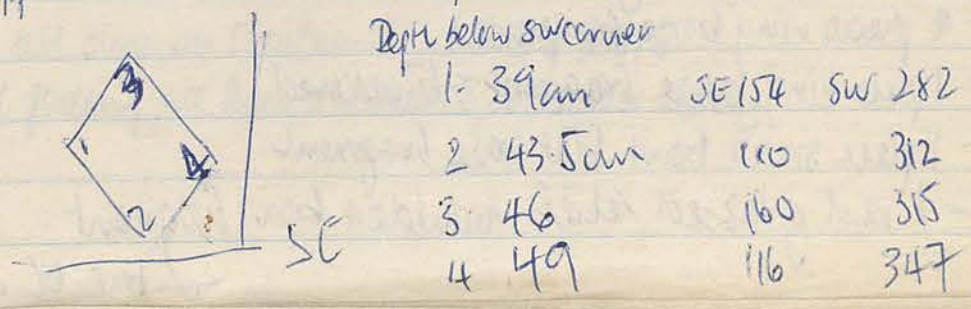 Depth below SW corner
1. 39cm SE 154 SW 282
2 43.5cm 110 312
3 46 160 315
4 49 116 347
3
1
4
2
SE